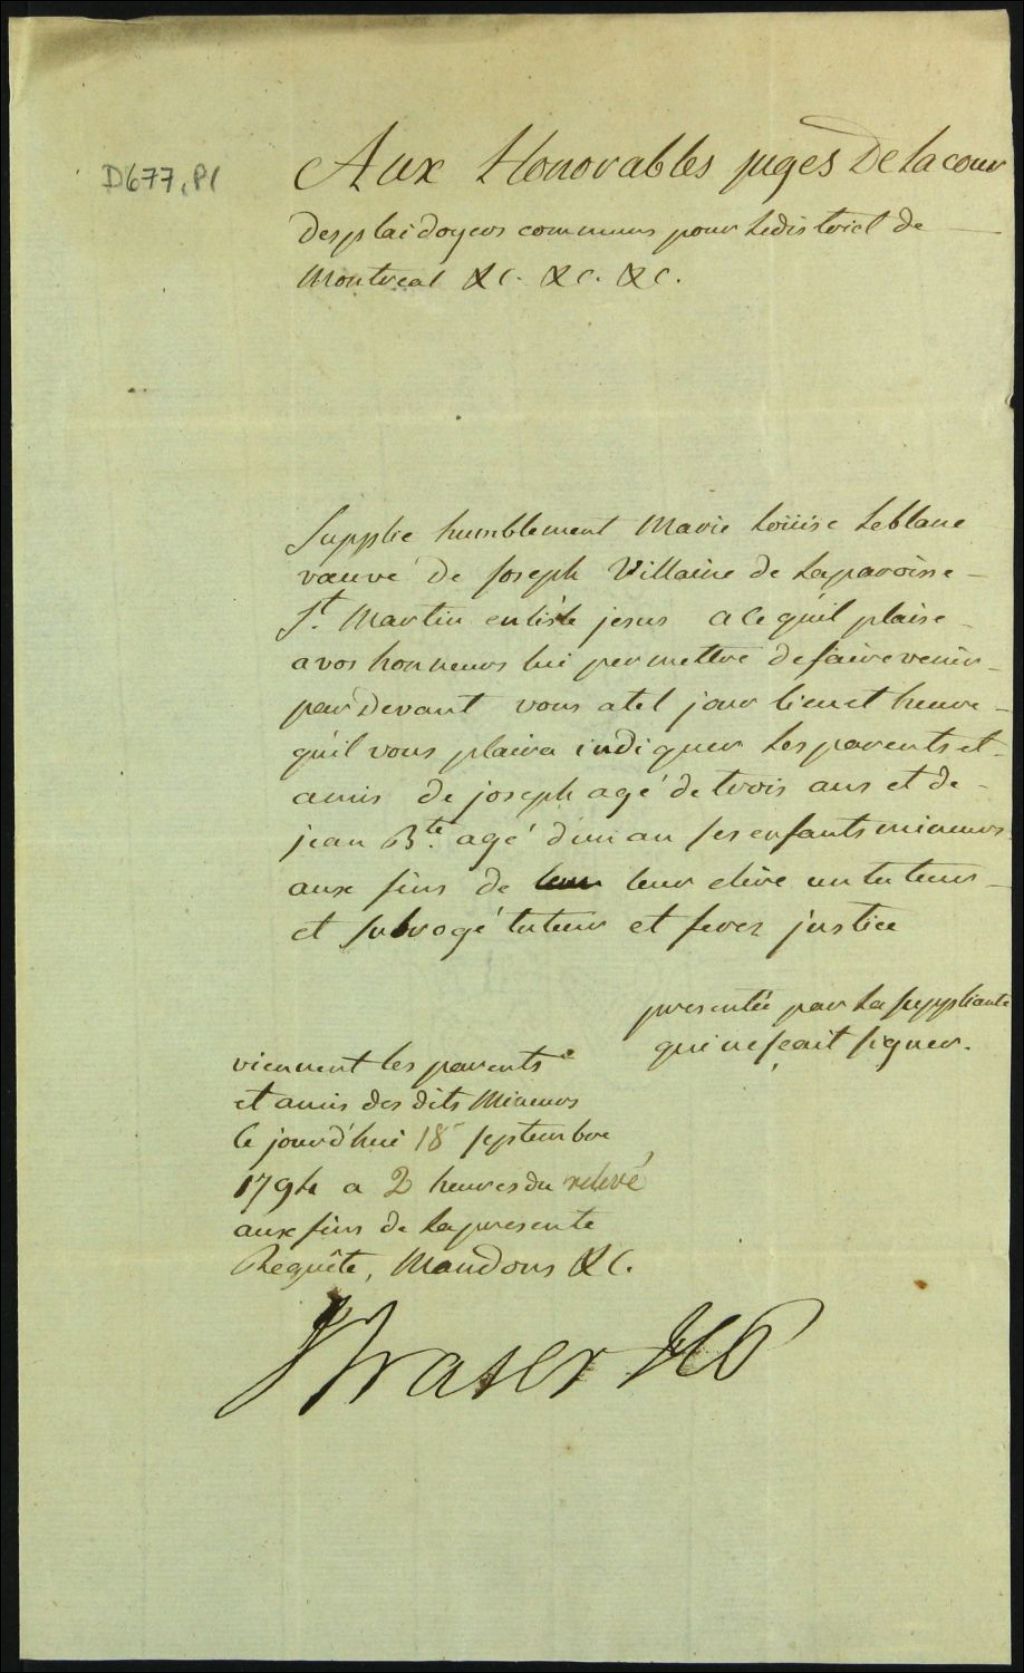 D677, P1
Aux Honorables juges De la cour
des plaidoyers communs pour le district de
Montreal &c. &c. &c.
Supplie humblement Marie Loüise Leblanc
vœuve de Joseph Villaine de la paroisse
St. Martin en l'isle jesus a ce qu'il plaise
a vos honneurs lui permettre de faire venir
par Devant vous a tel jour lieu et heure
qu'il vous plaira indiquer les parents et
amis de joseph agé de trois ans et de
jean Bte. agé d'un an ses enfants mineurs
aux fins de leur elire un tuteur
et subrogé tuteur et ferez justice
presentée par la suppliante
qui ne sçait signer.
viennent les parents
et amis des dits Mineurs
Ce jourd'hui 18 septembre
1794 a 2 heures du relevé
aux fins de la presente
Requête, Mandons &c.
JFraser JCP